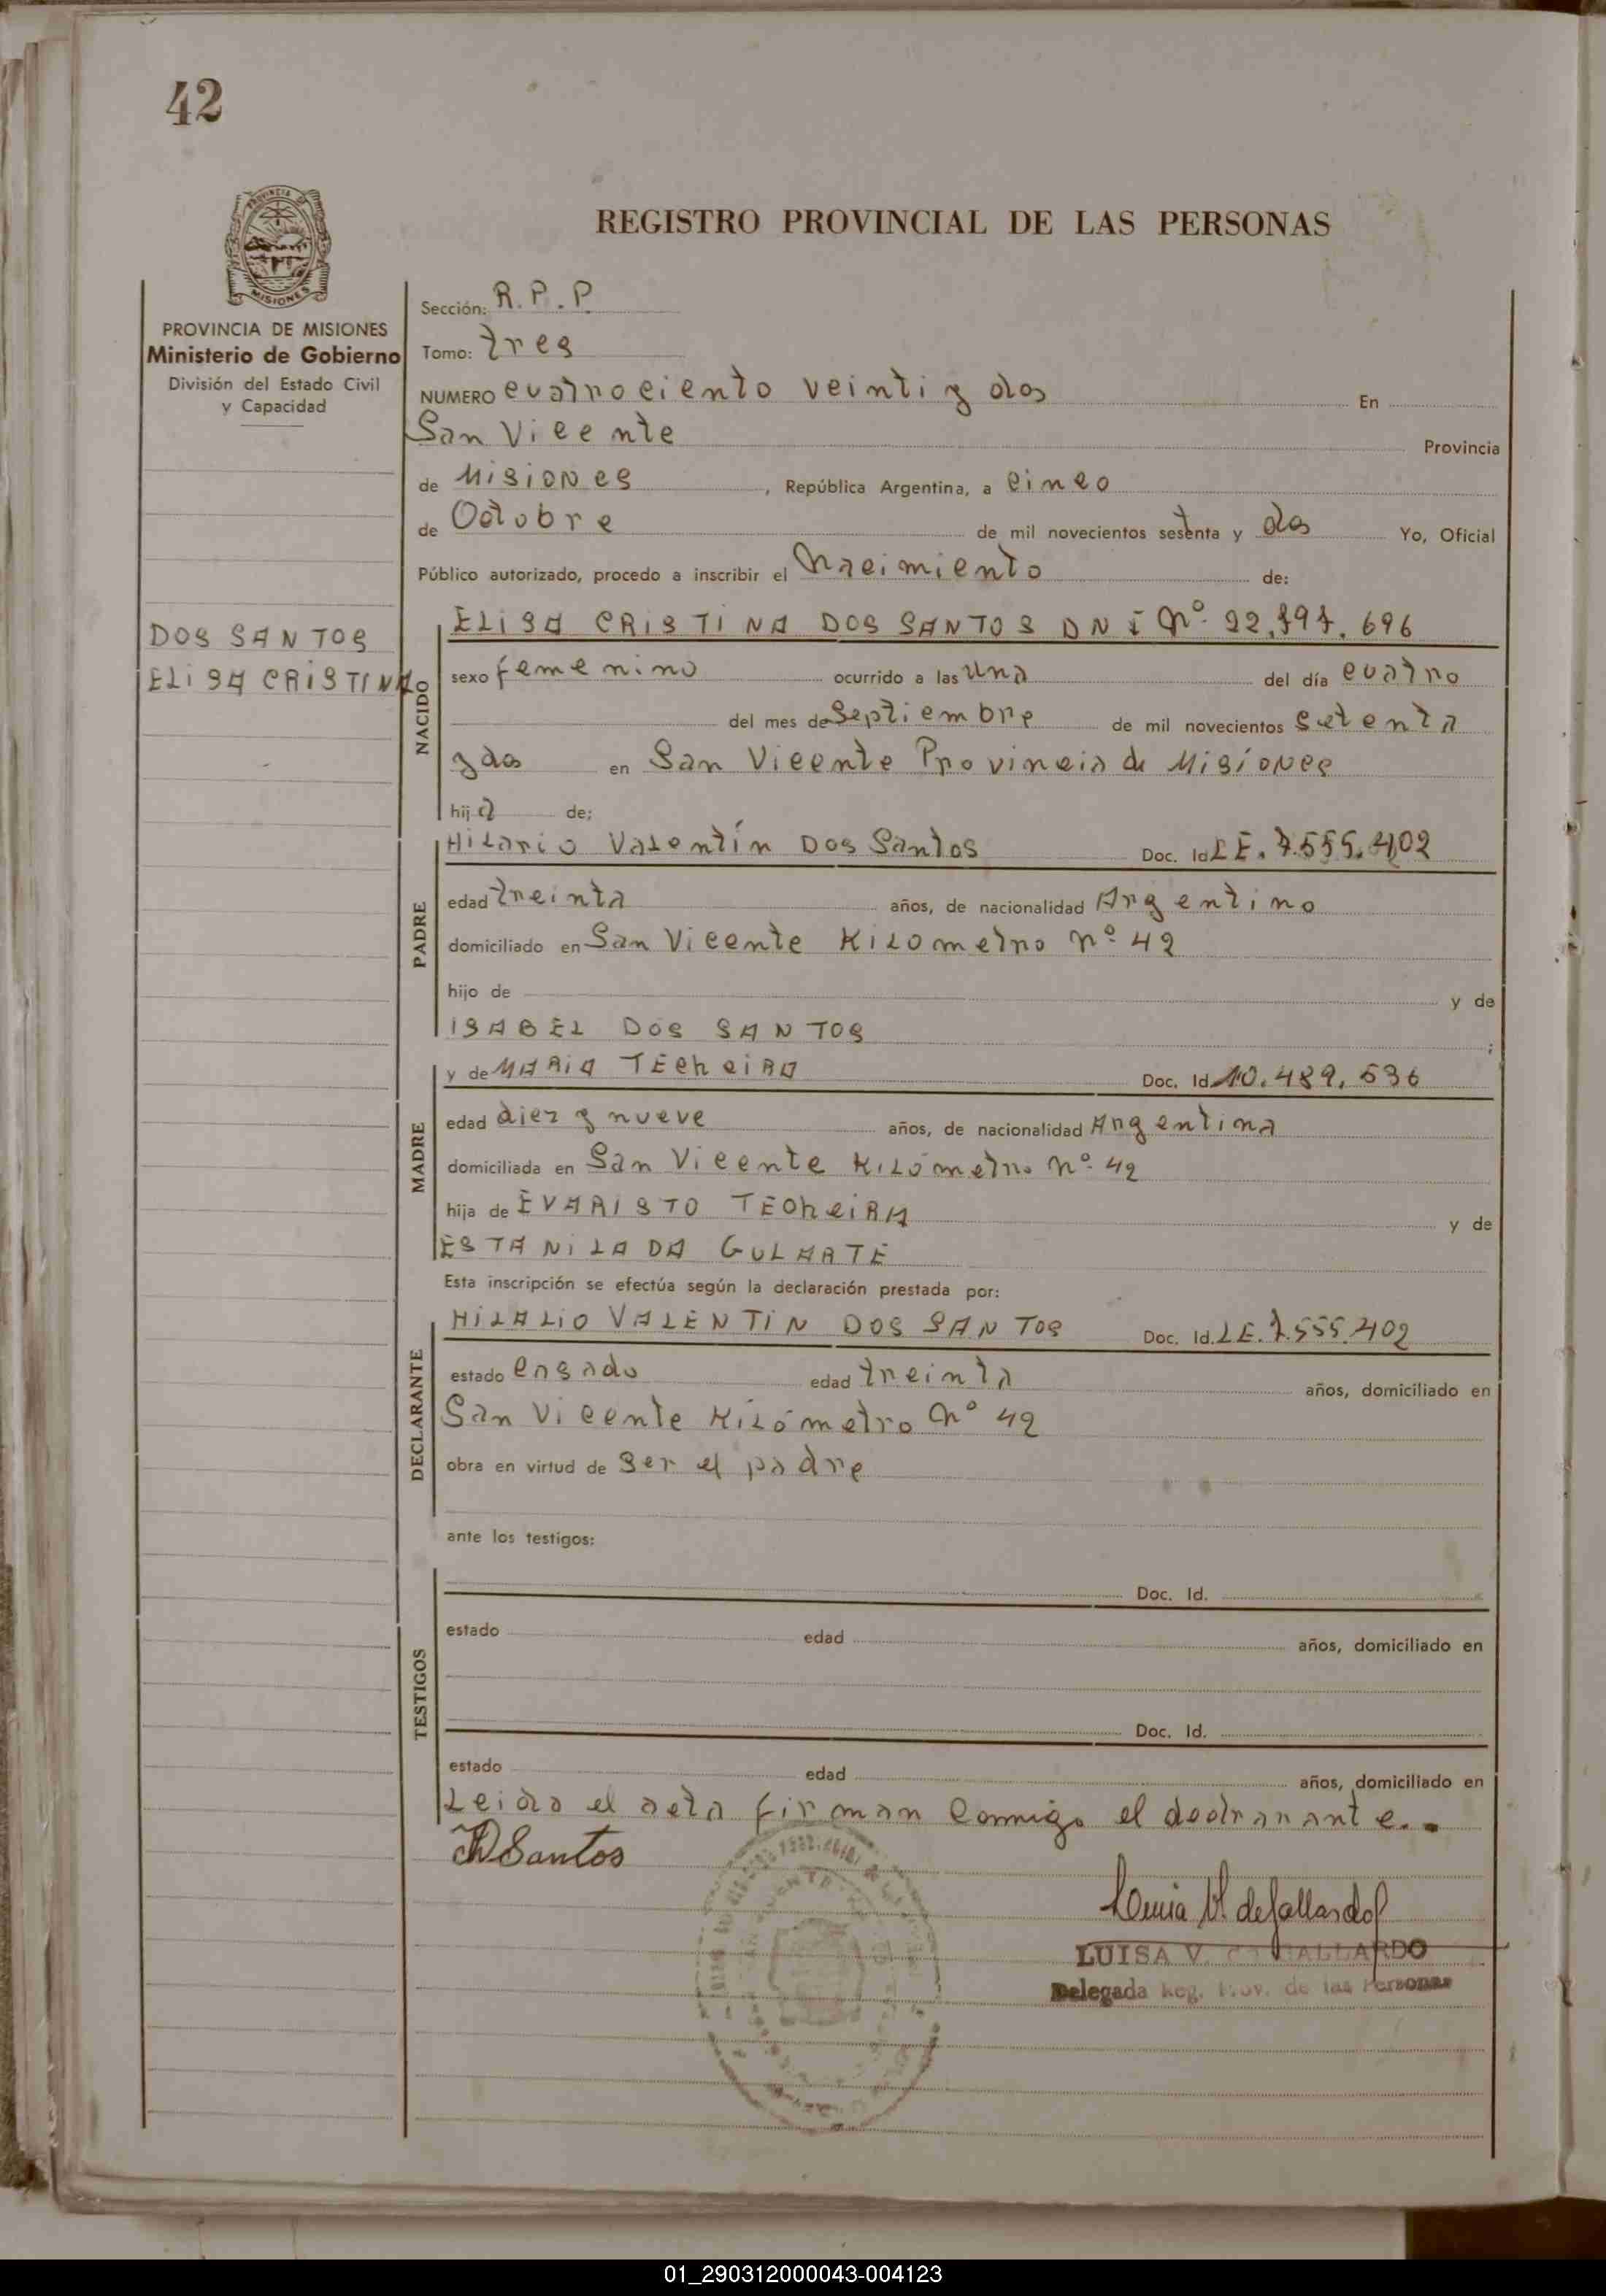 42
REGISTRO PROVINCIAL DE LAS PERSONAS
PROVINCIA DE MISIONES
Ministerio de Gobierno
División del Estado Civil
y Capacidad
Sección: R.P.P.
Tomo: tres
NUMERO cuatrociento veinti y dos En
San Vicente Provincia
de Misiones, República Argentina, a cinco
de Octubre de mil novecientos setenta y dos Yo, Oficial
Público autorizado, procedo a inscribir el Nacimiento de:
DOS SANTOS
ELISA CRISTINA
NACIDO
ELISA CRISTINA DOS SANTOS DNI Nº
sexo femenino ocurrido a las una del día cuatro
del mes de Septiembre de mil novecientos setenta
y dos en San Vicente Provincia de Misiones
hija de;
PADRE
Hilario Valentín Dos Santos Doc. Id LE. 7.555.402
edad treinta años, de nacionalidad Argentino
domiciliado en San Vicente Kilometro nº 42
hijo de y de
ISABEL DOS SANTOS ;
MADRE
y de MARIA TECheiRA Doc. Id. 10.489.536
edad diez y nueve años, de nacionalidad Argentina
domiciliada en San Vicente Kilómetro nº 42
hija de EVARISTO TECheiRA y de
ESTANILADA GULARTE
Esta inscripción se efectúa según la declaración prestada por:
DECLARANTE
HILALIO VALENTIN DOS SANTOS Doc. Id. LE. 7.555.402
estado casado edad treinta años, domiciliado en
San Vicente Kilómetro Nº 42
obra en virtud de ser el padre
ante los testigos:
TESTIGOS
Doc. Id.
estado edad años, domiciliado en
Doc. Id.
estado edad años, domiciliado en
Leida el acta firman conmigo el
Santos
LUISA V. de GALLARDO
Delegada Reg. Prov. de las Personas
01_290312000043-004123